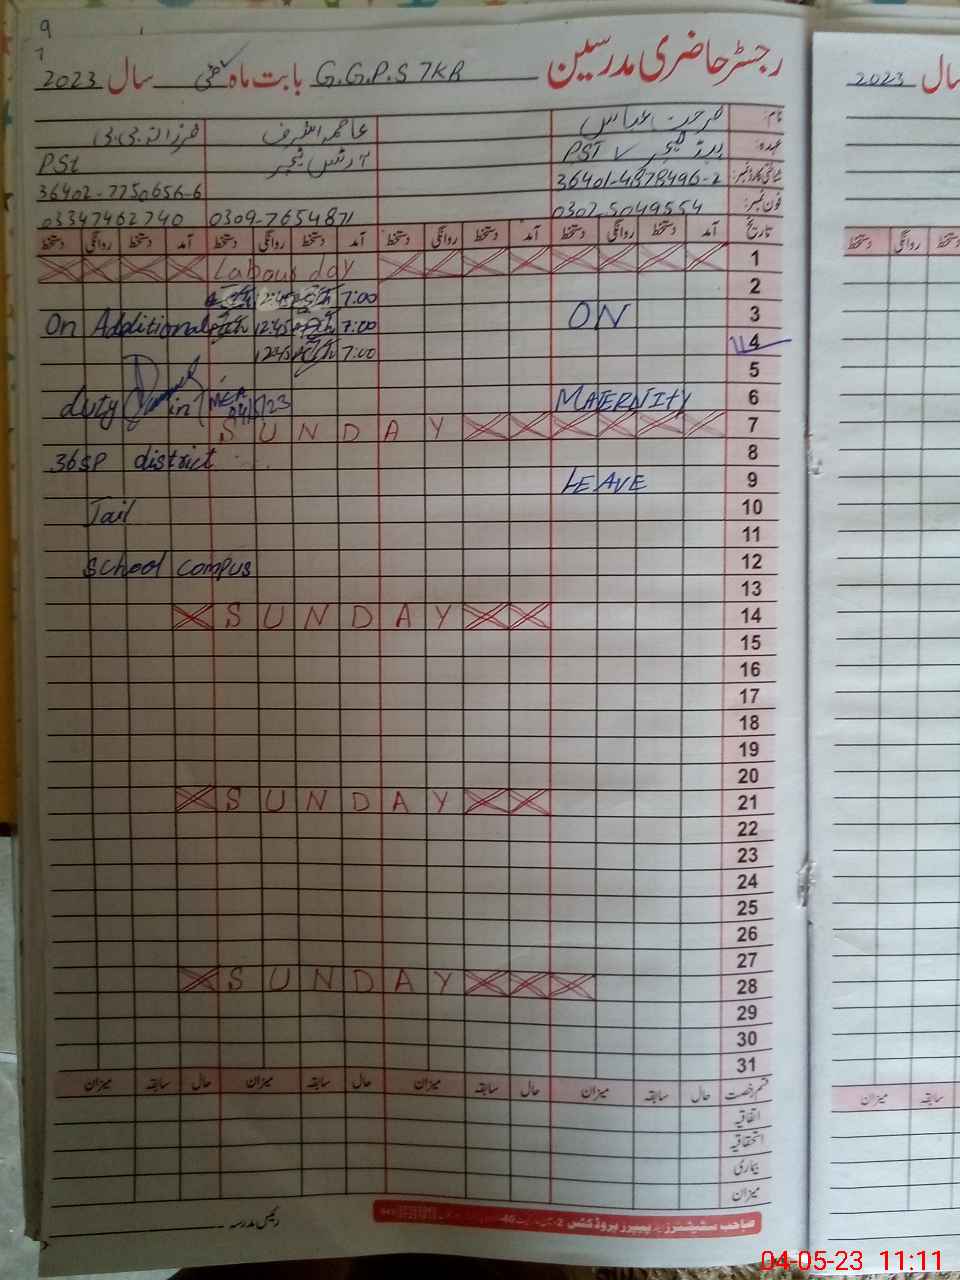 9
7
رجسٹر حاضری مدرسین بابت ماہ G.G.P.S 7KR مئی سال 2023
نام: فرحت عباس عاصمہ اشرف فرزانہ بی بی
عہدہ: ہیڈ ٹیچر PST PSt
شناختی کارڈ نمبر: 36401-4878496-2 36402-7750656-6
فون نمبر: 0307-5049554 0309-7654871 03347462740
تاریخ آمد دستخط روانگی دستخط آمد دستخط روانگی دستخط آمد دستخط روانگی دستخط آمد دستخط روانگی دستخط
1 Labour day
2 7:00 12:45
3 ON 7:00 12:45 On Additional
4 7:00 12:45
5
6 MATERNITY duty in MEA 04/5/23
7 SUNDAY
8 365P district
9 LEAVE
10 Jail
11
12 school compus
13
14 SUNDAY
15
16
17
18
19
20
21 SUNDAY
22
23
24
25
26
27
28 SUNDAY
29
30
31
قسم رخصت حال سابقہ میزان حال سابقہ میزان حال سابقہ میزان حال سابقہ میزان
اتفاقیہ
استحقاقیہ
بیماری
میزان
رئیس مدرسہ
صاحب سٹیشنرز اینڈ پیپرز پروڈکٹس
سال 2023
دستخط روانگی دستخط
سابقہ میزان
04-05-23 11:11